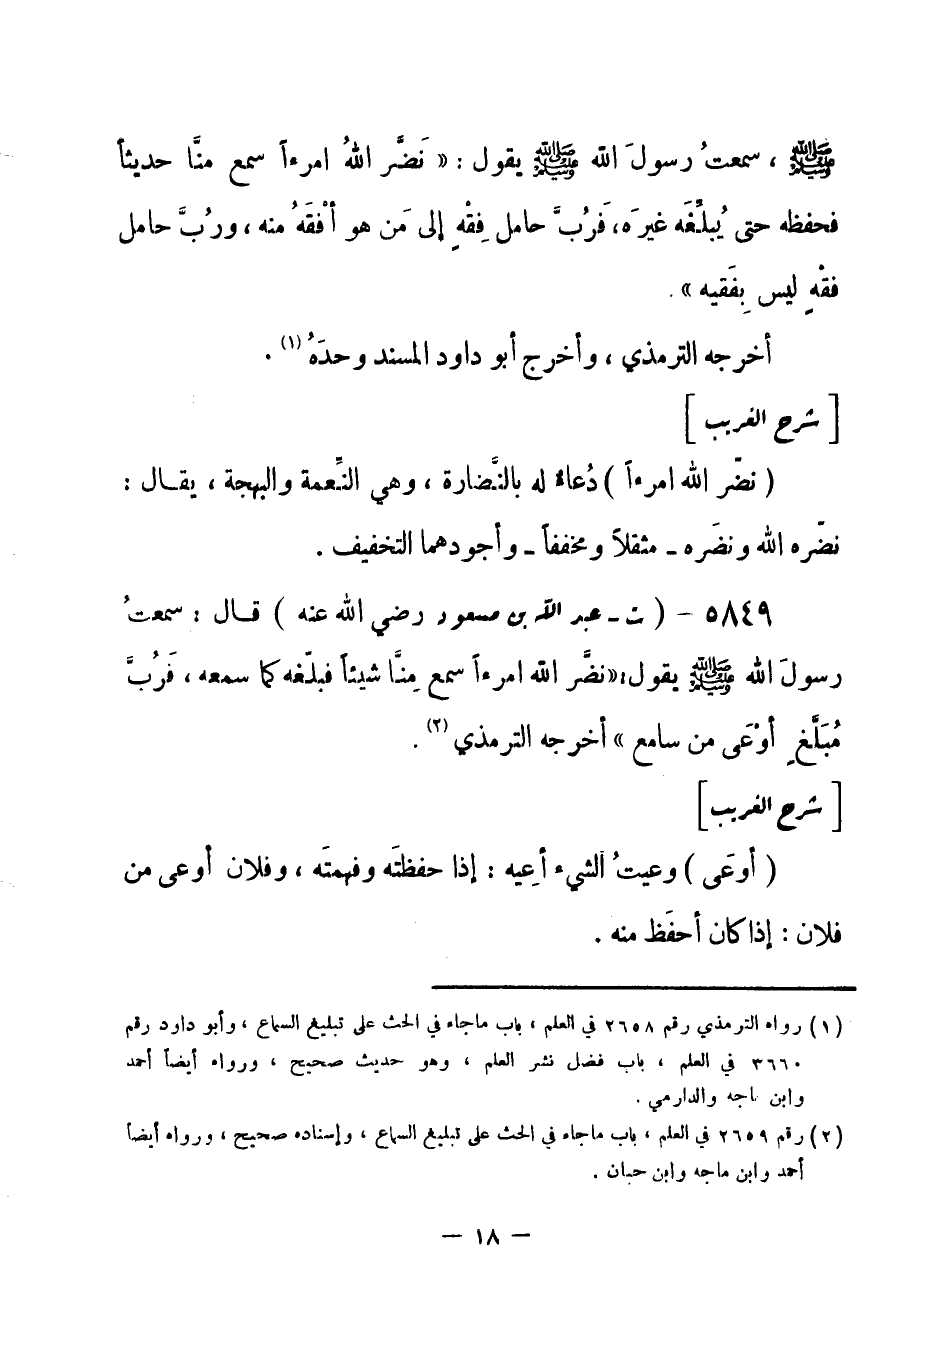 ﷺ ، سمعتُ رسولَ الله ﷺ يقول : « نَضَّر اللهُ امرءاً سمع منَّا حديثاً
فحفظه حتى يُبلِّغَه غيرَه، فَرُبَّ حامل فِقْهٍ إلى مَن هو أفْقَهُ منه ، ورُبَّ حامل
فقْهٍ ليس بِفَقيه » .
أخرجه الترمذي ، وأخرج أبو داود المسند وحدَهُ (١) .
[ شرح الغريب ]
( نضّر الله امرءاً ) دُعاءٌ له بالنَّضارة ، وهي النِّعمة والبهجة ، يقـال :
نضّره الله ونضَره ـ مثقلاً ومخففاً ـ وأجودهما التخفيف .
٥٨٤٩ - ( ت ـ عبد الله بن مسعود رضي الله عنه ) قـال : سمعتُ
رسولَ الله ﷺ يقول: «نضَّر الله امرءاً سمع مِنَّا شيئاً فبلّغه كما سمعه ، فَرُبَّ
مُبَلَّغٍ أوْعَى من سامع » أخرجه الترمذي (٢) .
[ شرح الغريب ]
( أوعَى ) وعيتُ الشيء أَعِيه : إذا حفظتَه وفهمتَه ، وفلان أوعى من
فلان : إذا كان أحفَظ منه .
(١) رواه الترمذي رقم ٢٦٥٨ في العلم ، باب ماجاء في الحث على تبليغ السماع ، وأبو داود رقم
٣٦٦٠ في العلم ، باب فضل نشر العلم ، وهو حديث صحيح ، ورواه أيضاً أحمد
وابن ماجه والدارمي .
(٢) رقم ٢٦٥٩ في العلم ، باب ماجاء في الحث على تبليغ السماع ، وإسناده صحيح ، ورواه أيضاً
أحمد وابن ماجه وابن حبان .
— ١٨ —